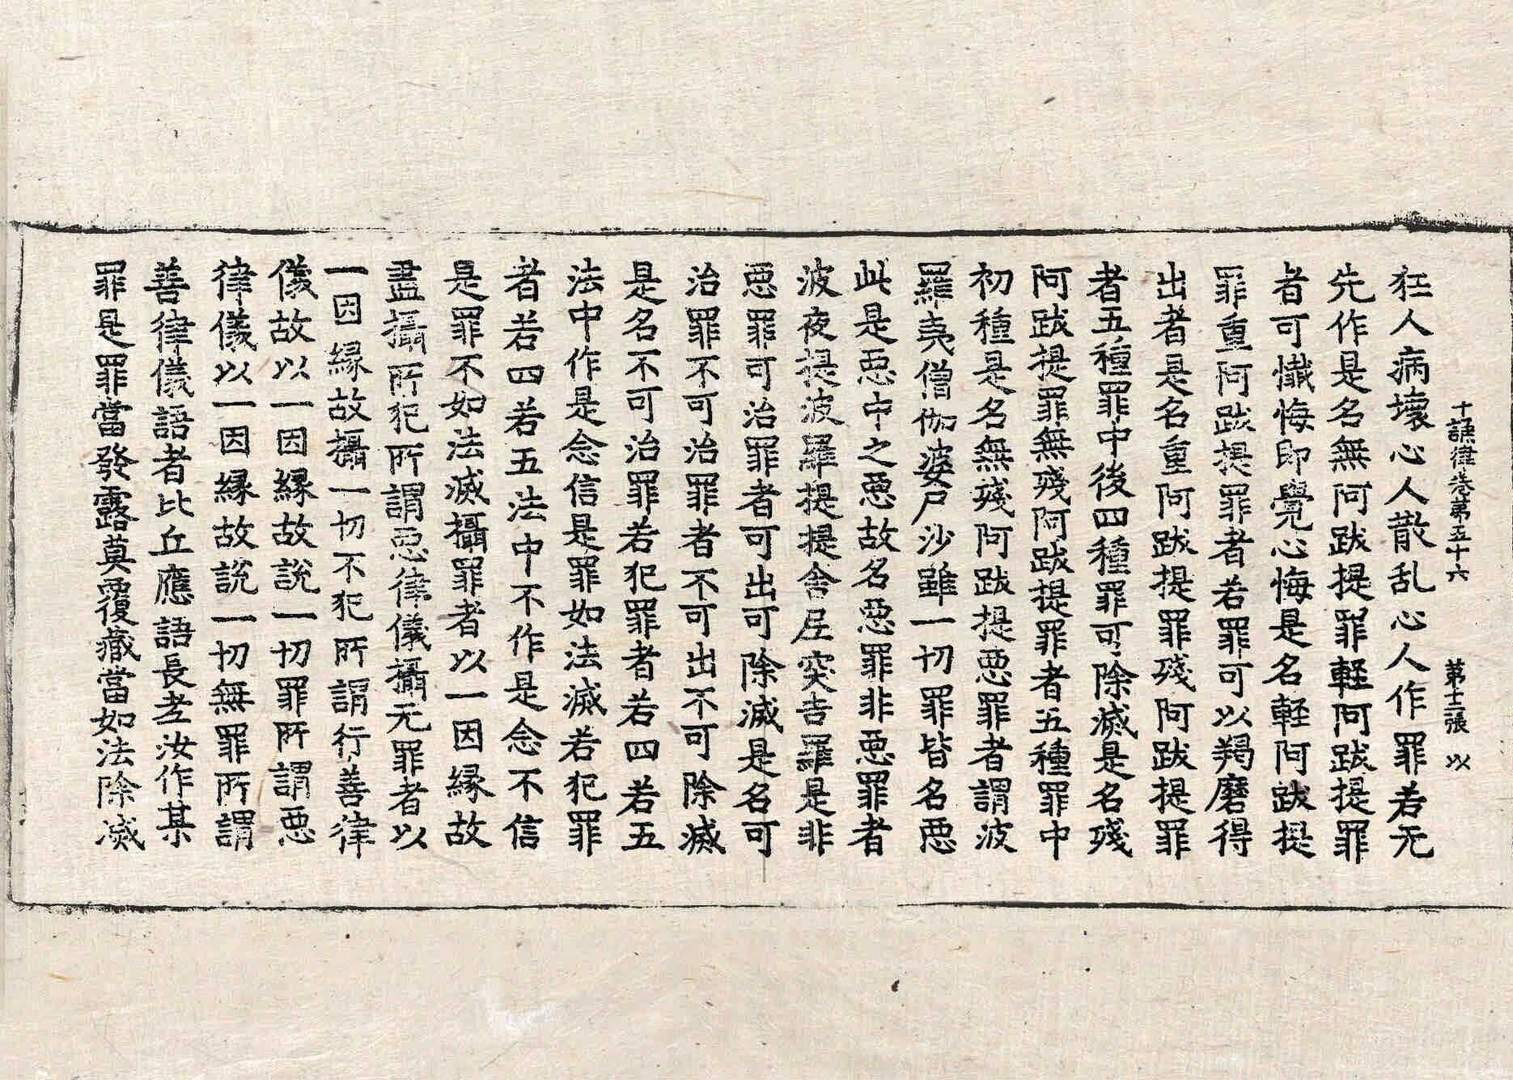 十誦律卷第五十六 第十二張 以
狂人病壞心人散乱心人作罪若无
先作是名無阿跋提罪輕阿跋提罪
者可懺悔即覺心悔是名輕阿跋提
罪重阿跋提罪者若罪可以羯磨得
出者是名重阿跋提罪殘阿跋提罪
者五種罪中後四種罪可除滅是名殘
阿跋提罪無殘阿跋提罪者五種罪中
初種是名無殘阿跋提惡罪者謂波
羅夷僧伽婆尸沙雖一切罪皆名惡
此是惡中之惡故名惡罪非惡罪者
波夜提波羅提提舍尼突吉羅是非
惡罪可治罪者可出可除滅是名可
治罪不可治罪者不可出不可除滅
是名不可治罪若犯罪者若四若五
法中作是念信是罪如法滅若犯罪
者若四若五法中不作是念不信
是罪不如法滅攝罪者以一因緣故
盡攝所犯所謂惡律儀攝无罪者以
一因緣故攝一切不犯所謂行善律
儀故以一因緣故說一切罪所謂惡
律儀以一因緣故說一切無罪所謂
善律儀語者比丘應語長老汝作某
罪是罪當發露莫覆藏當如法除滅